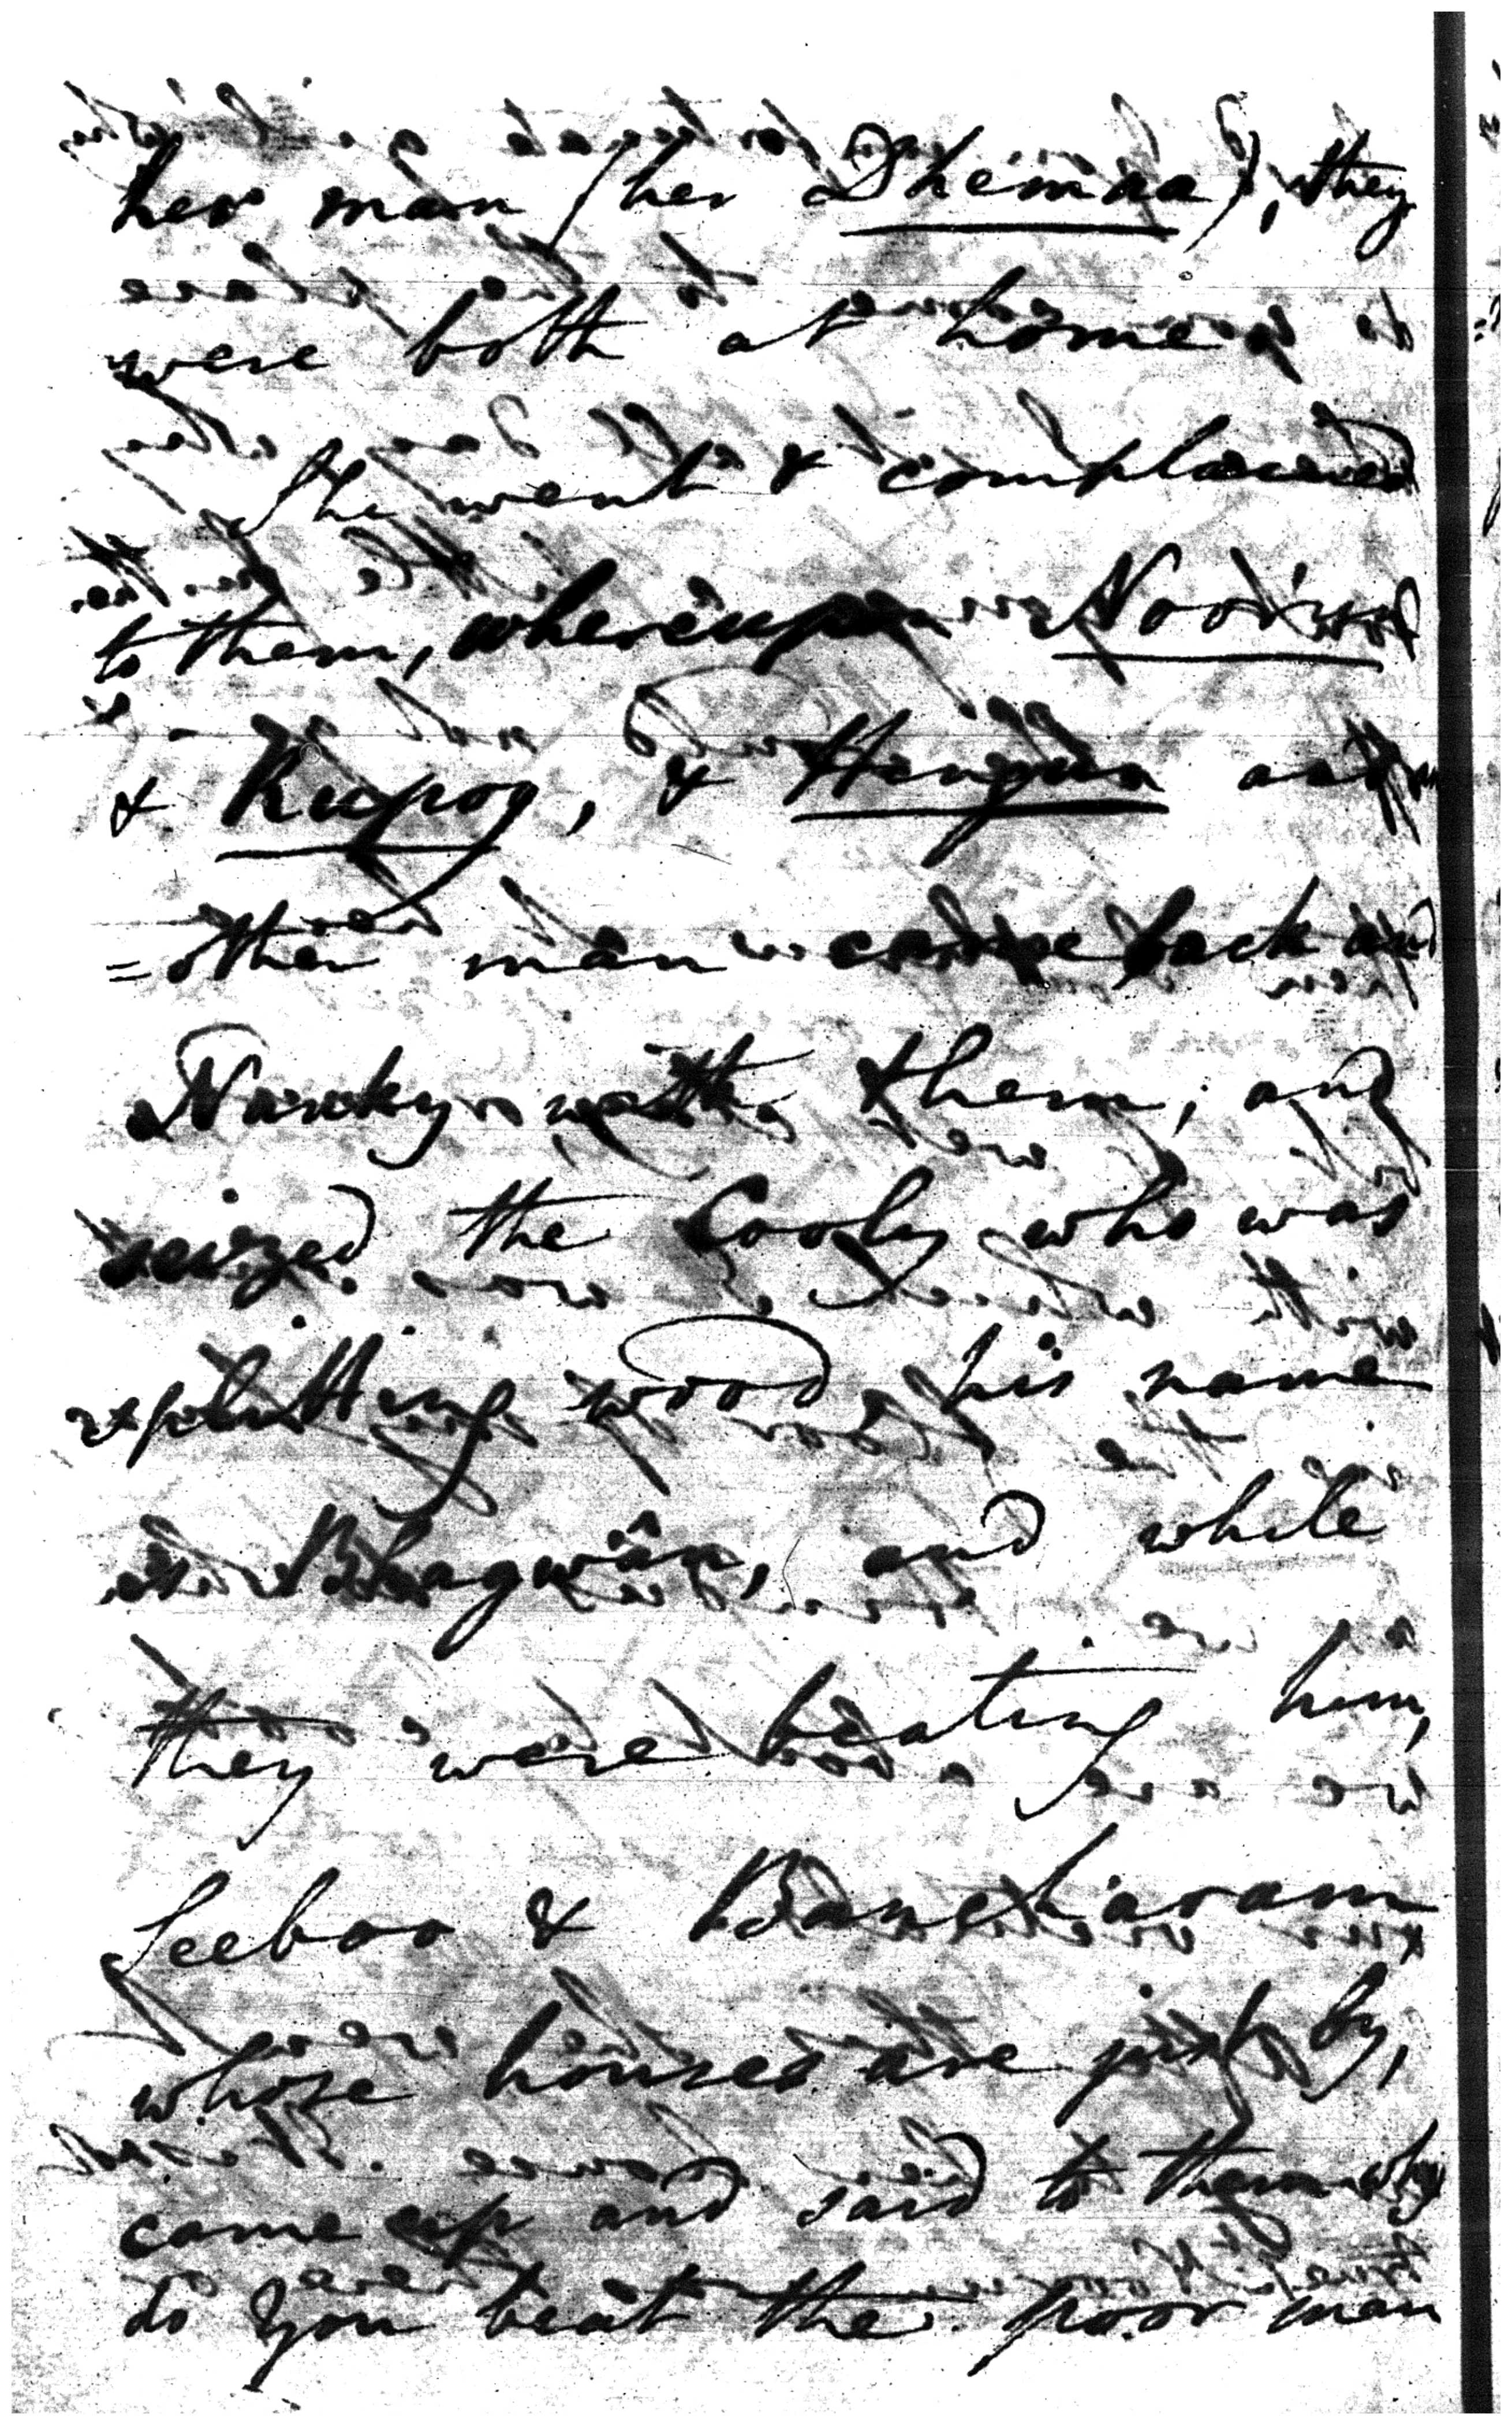 her man (her Dhemaa), they
were both at home
She went & complained
to them, whereupon
& Rupoy, & Hingun an
=other man came back and
Nanky with them; and
seized the Cooly who was
splitting wood his name
is Bhagwân, and while
they were beating him,
Seeboo & Bancharam
whose houses are just by,
came up and said to them why
do you beat the poor man